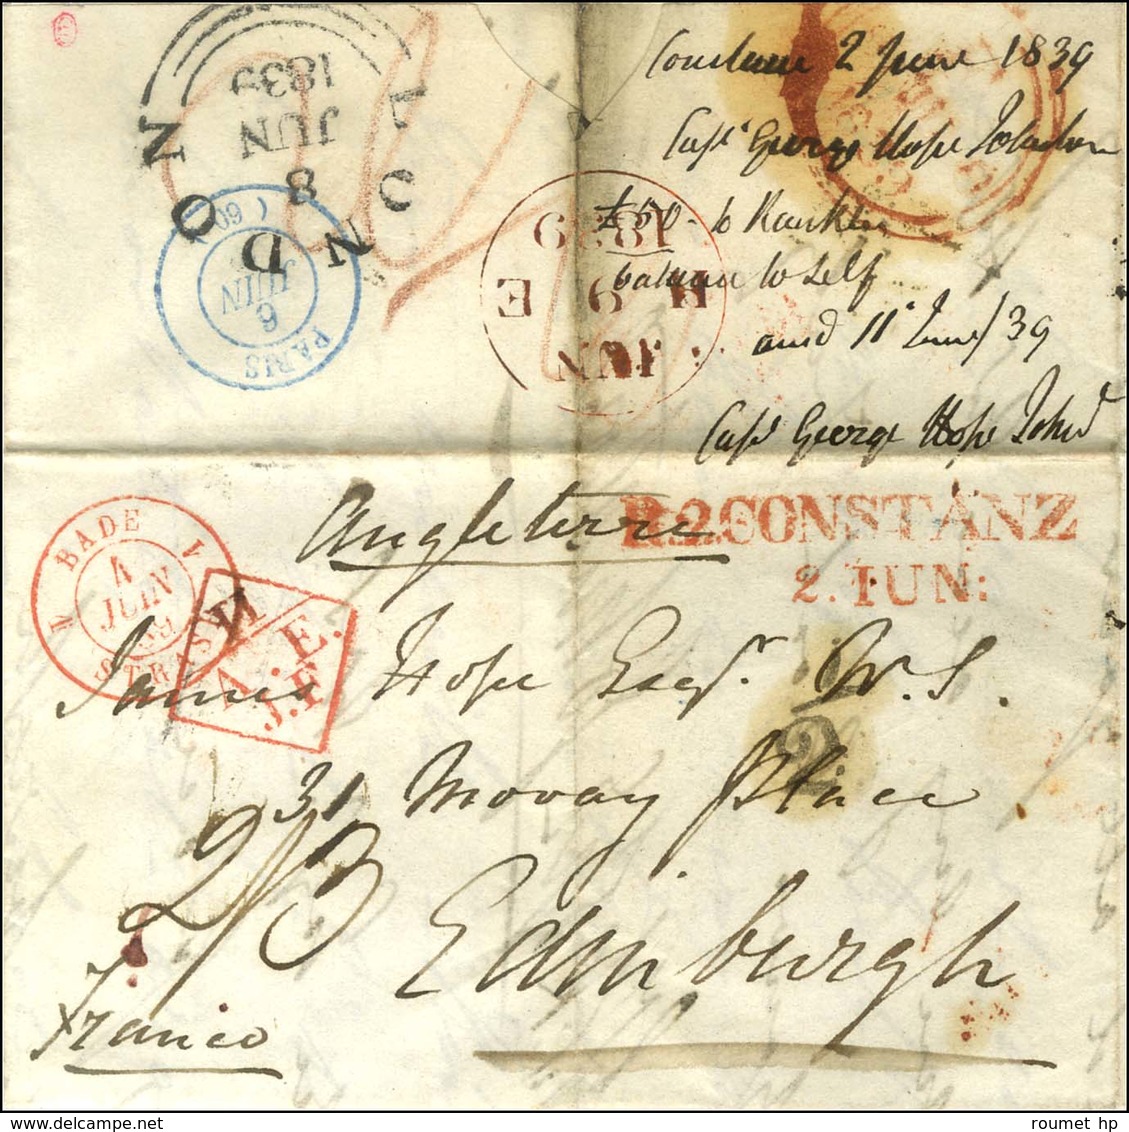 Constance 2 June 1839
Capt George Hope Johnston
£60 - to Rankin
balance to self
ansd 11 June/39
Capt George Hope Johnd
LONDON
8
JUN
1839
PARIS
6
JUIN
(60)
H 9 E
JUN
1839
Angleterre
R.2.CONSTANZ
2.IUN:
BADE
4
JUIN
39
STRASB
A.E.
J.F.
James Hope Esqr. W.S.
31 Moray Place
2
2/3
Edinburgh
Franco
roumet hp